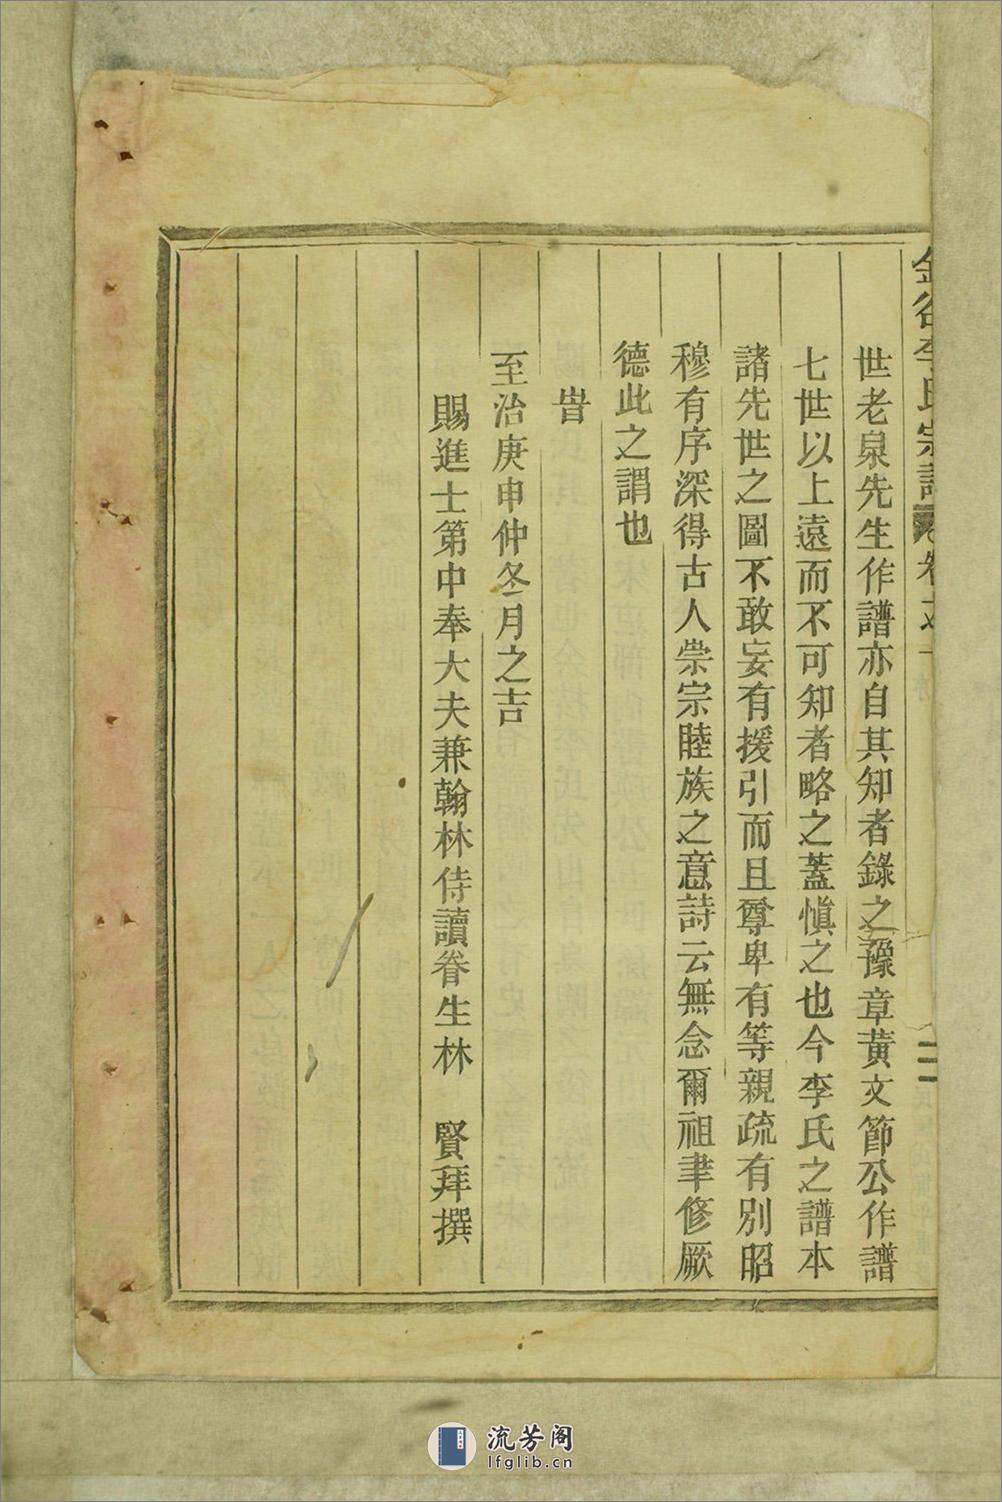 金谷李氏宗譜 卷之一
世老泉先生作譜亦自其知者錄之豫章黃文節公作譜
七世以上遠而不可知者略之蓋愼之也今李氏之譜本
諸先世之圖不敢妄有援引而且尊卑有等親疏有別昭
穆有序深得古人崇宗睦族之意詩云無念爾祖聿修厥
德此之謂也
旹
至治庚申仲冬月之吉
賜進士第中奉大夫兼翰林侍讀眷生林 賢拜撰
流芳阁
lfglib.cn